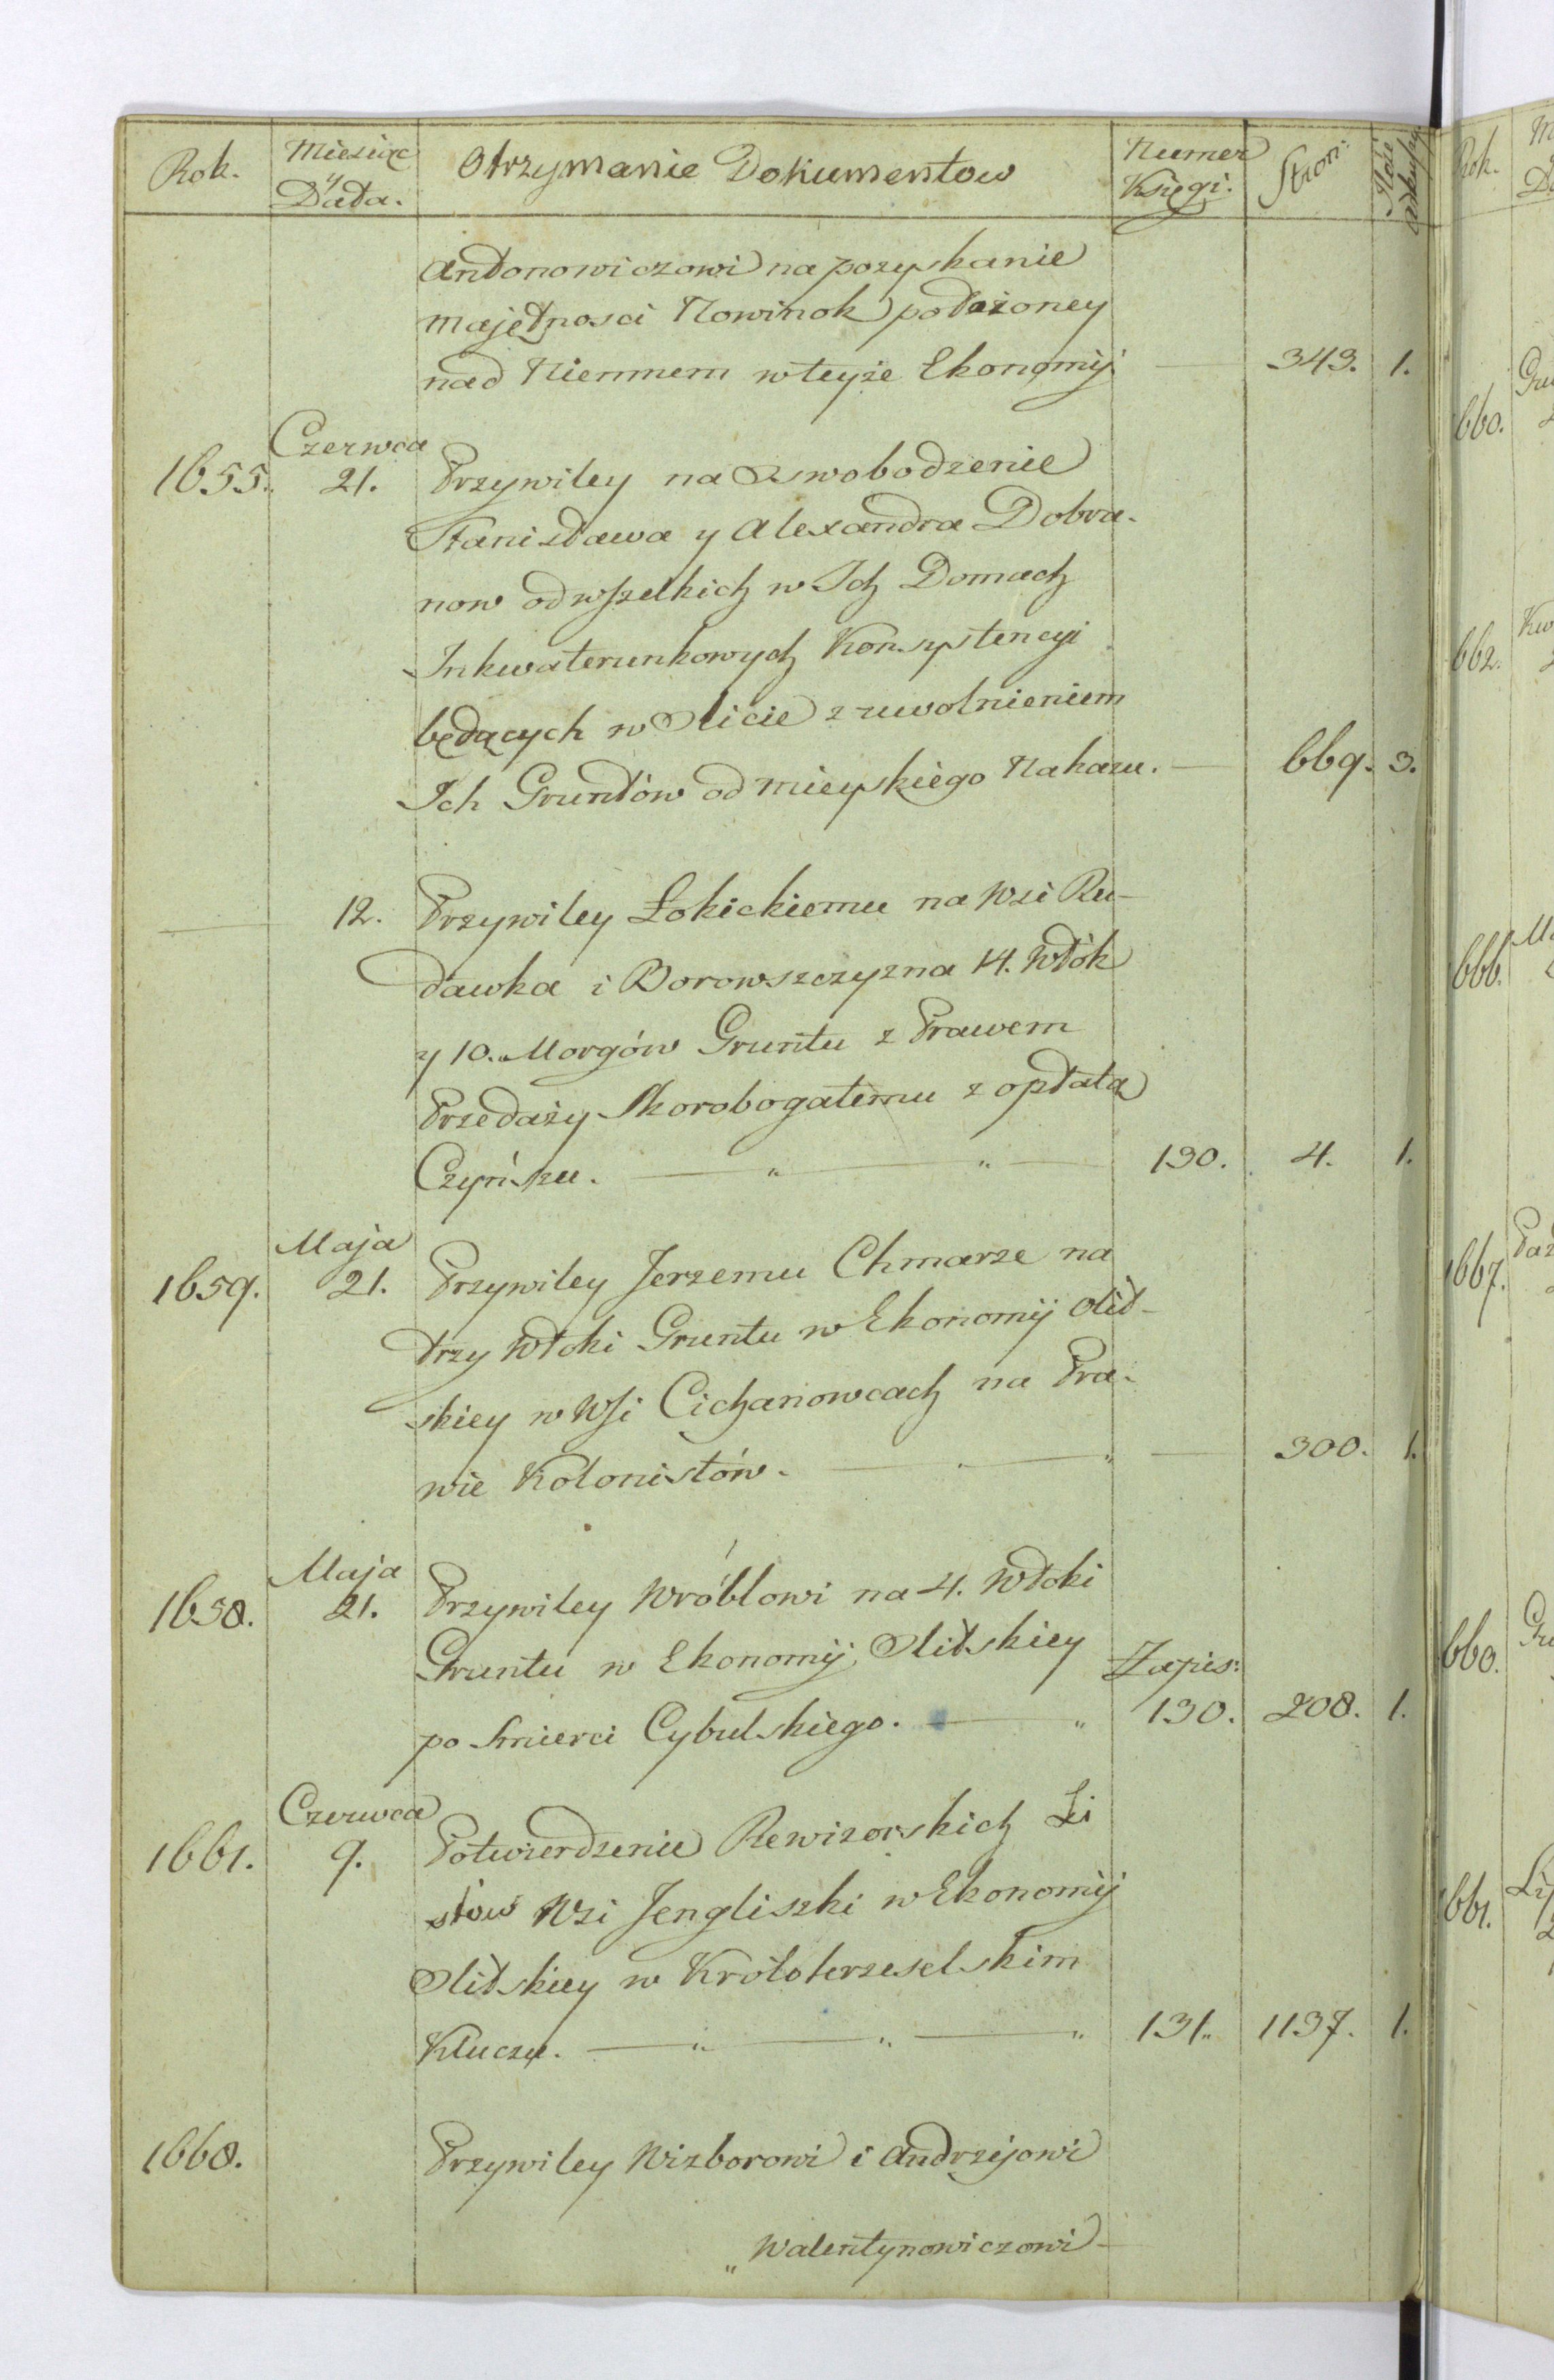 Rok. Miesiąc y Data. Otrzymanie Dokumentow Numer Księgi. Stron:
Antonowiczowi na pozyskanie
majętnosci Nowinok położoney
nad Niemnem w teyże Ekonomij 343. 1.
1655. Czerwca 21. Przywiley na Oswobodzenie
Stanisława y Alexandra Dobra-
now od wszelkich w Ich Domach
Inkwaterunkowych Konsystencyi
będących w Olicie z uwolnieniem
Ich Gruntów od mieyskiego Nakazu. 669. 3.
12. Przywiley Łokickiemu na Wsi Ru-
dawka i Borowszczyzna 14. Włók
y 10. Morgów Gruntu z Prawem
Przedaży Skorobogatemu z opłatą
Czyńszu. 130. 4. 1.
1659. Maja 21. Przywiley Jerzemu Chmarze na
trzy Włoki Gruntu w Ekonomij Olit-
skiey w Wsi Cichanowcach na Pra-
wie Kolonistów. 300. 1.
1658. Maja 21. Przywiley Wróblowi na 4. Włoki
Gruntu w Ekonomij Olitskiey Zapis:
po Smierci Cybulskiego. 130. 208. 1.
1661. Czerwca 9. Potwierdzenie Rewizorskich Li
stów Wsi Jengliszki w Ekonomij
Olitskiey w
Kluczu. 131. 1137. 1.
1668. Przywiley Wizborowi i Andrzejowi
Walentynowiczowi